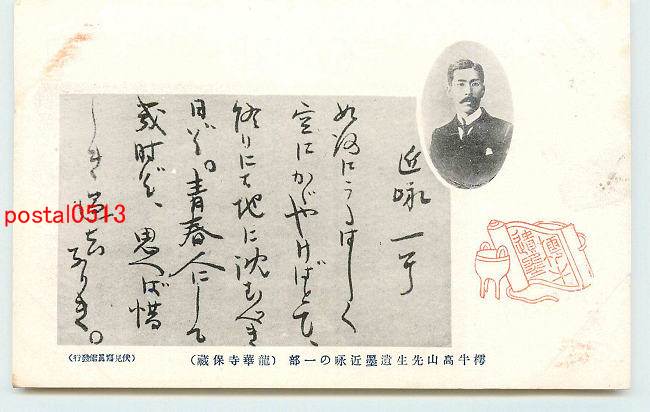 近咏一首
如何にうるはしく
空にかゞやけばとて、
終りには地に沈むべき
日ぞ。青春人にして
幾時ぞ、思へば惜
しき
なりき。
樗牛高山先生遺墨近咏の一部 (龍華寺保藏)
(伏見寫眞館發行)
postal0513